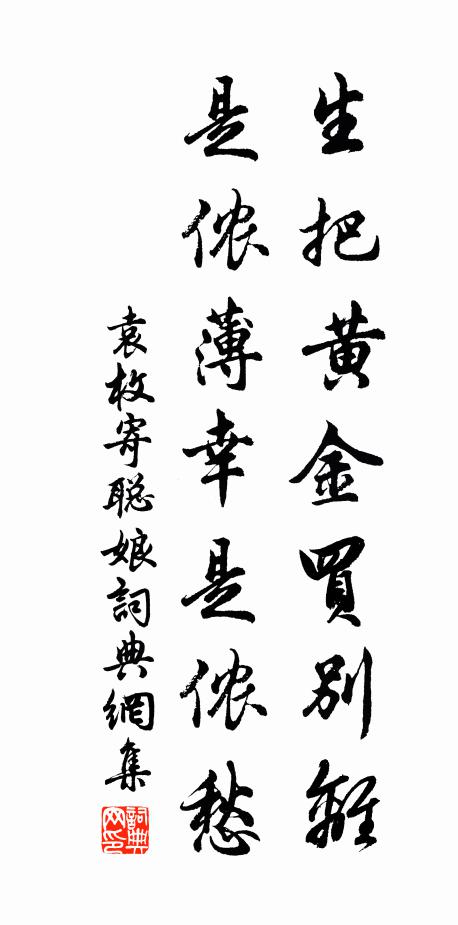 生把黄金買別離
是侬薄幸是侬愁
袁枚寄聪娘詞典網集
詞典
网印